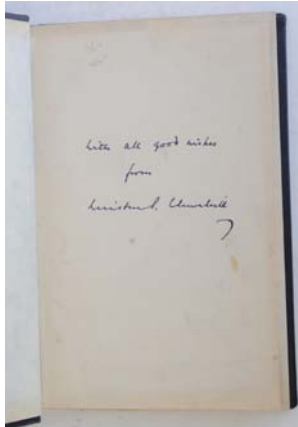 with all good wishes
from
Winston S. Churchill